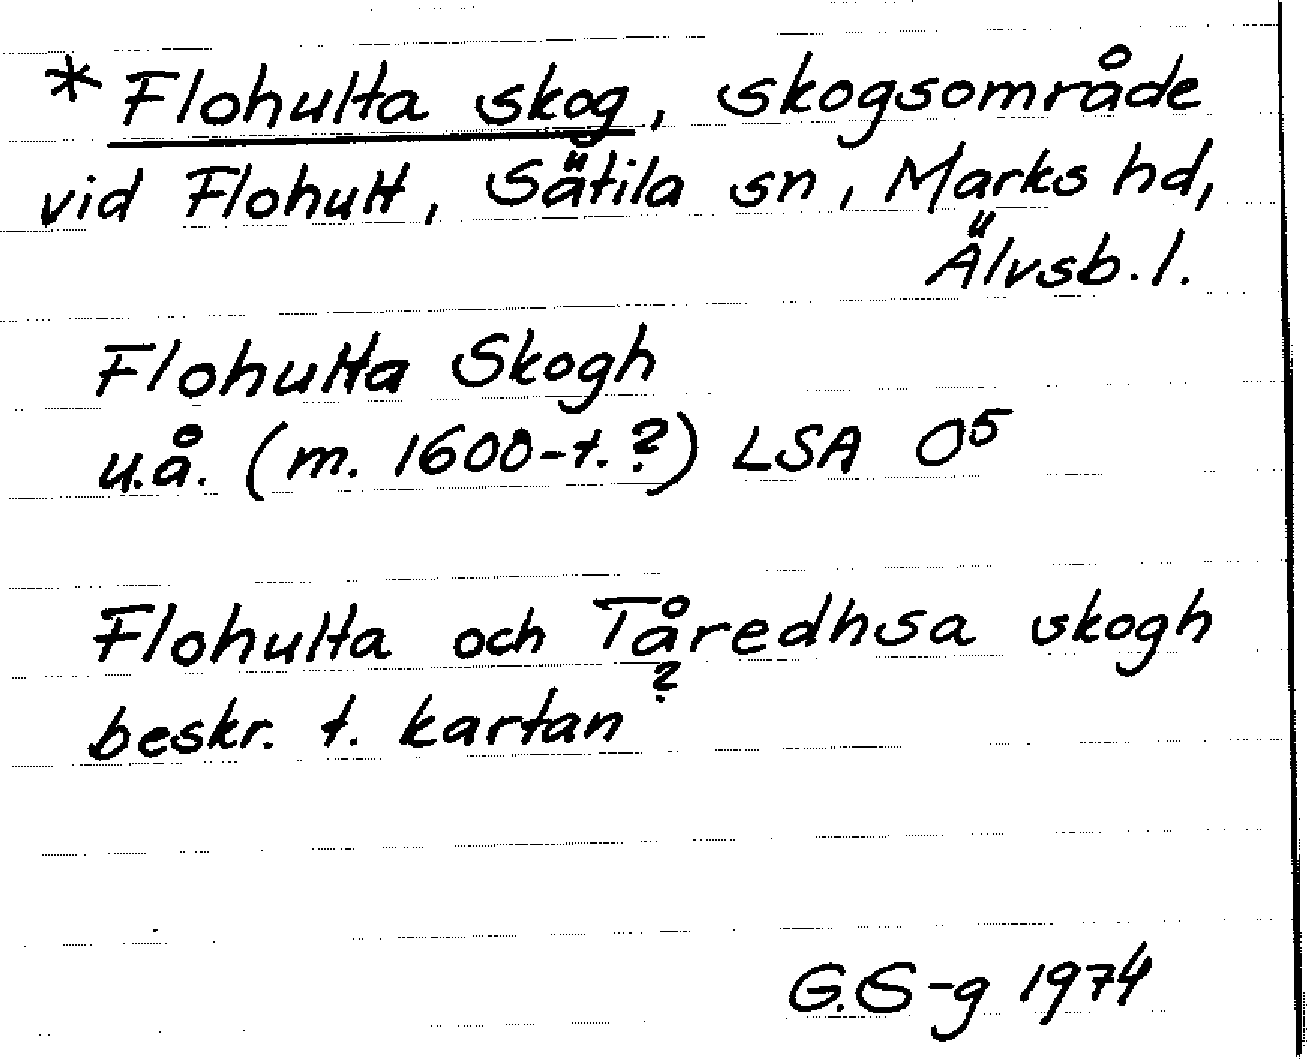 * Flohulta skog, skogsområde
vid Flohult, Sätila sn, Marks hd,
Älvsb. l.
Flohulta Skogh
u.å. (m. 1600-t.?) LSA O⁵
Flohulta och Tåredhsa skogh
?
beskr. t. kartan
G.S-g 1974